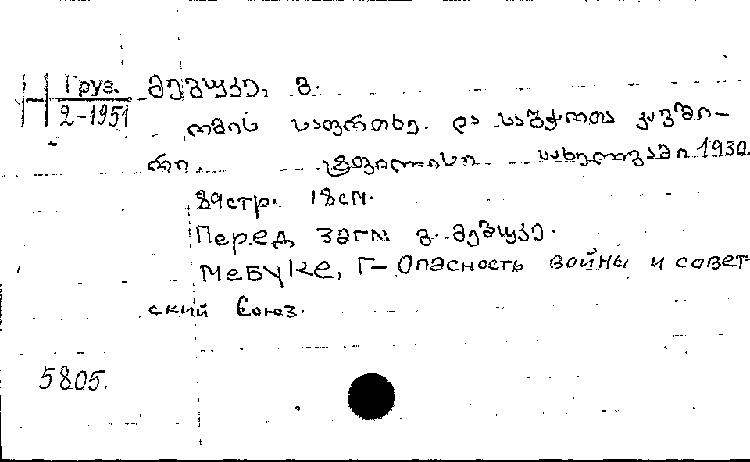 Груз.
2-1951
მებუკე, გ.
ომის საფრთხე და საბჭოთა კავში-
რი. ტფილისი სახელგამი 1930.
89стр. 18см.
Перед загл. გ. მებუკე.
Мебуке, Г- Опасность войны и совет-
ский Союз.
5805.